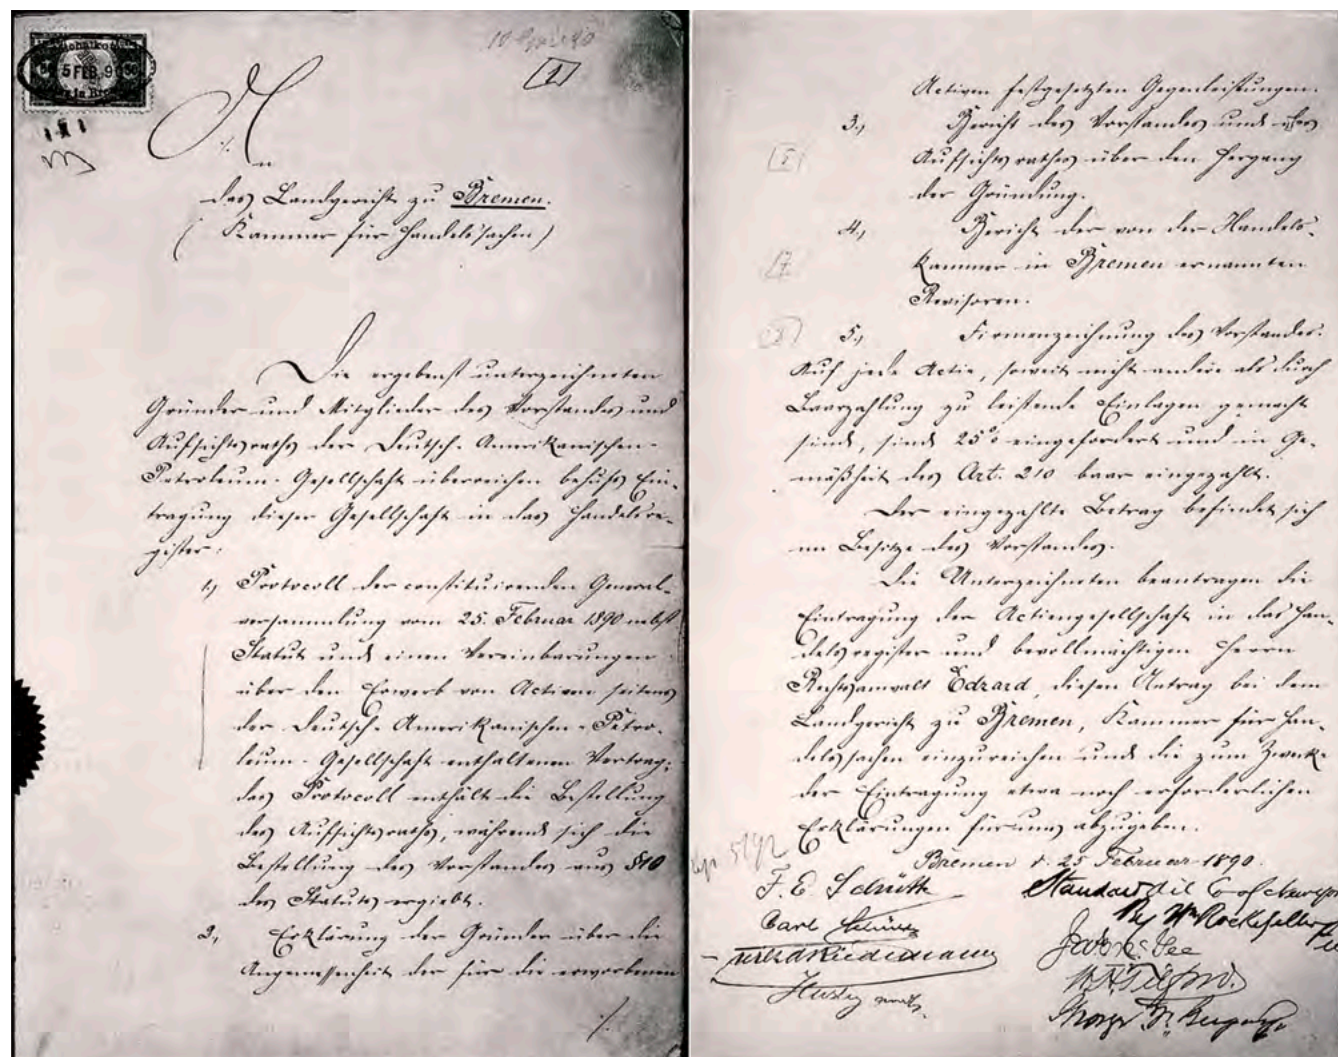 5 FEB. 9
1
An
das Landgericht zu Bremen.
(Kammer für Handelssachen)
Die ergebenst unterzeichneten
Gründer und Mitglieder des Vorstandes und
Aufsichtsraths der Deutsch-Amerikanischen-
Petroleum-Gesellschaft überreichen behufs Ein-
tragung dieser Gesellschaft in das Handelsre-
gister:
1, Protocoll der constituirenden General-
versammlung vom 25. Februar 1890 nebst
Statut und einen Vereinbarungen
über den Erwerb von Activen seitens
der Deutsch-Amerikanischen-Petro-
leum-Gesellschaft enthaltenen Vertrag;
das Protocoll enthält die Bestellung
des Aufsichtsraths, während sich die
Bestellung des Vorstandes aus §10
des Statuts ergiebt.
2, Erklärung der Gründer über die
Angemessenheit der für die erworbenen
Activen festgesetzten Gegenleistungen.
3, Bericht des Vorstandes und des
Aufsichtsrathes über den Hergang
der Gründung.
4, Bericht der von der Handels-
kammer in Bremen ernannten
Revisoren.
5, Firmenzeichnung des Vorstandes.
Auf jede Actie, soweit nicht andere als durch
Baarzahlung zu leistende Einlagen gemacht
sind, sind 25% eingefordert und in Ge-
mäßheit des Art. 210 baar eingezahlt.
Der eingezahlte Betrag befindet sich
im Besitze des Vorstandes.
Die Unterzeichneten beantragen die
Eintragung der Actiengesellschaft in das Han-
delsregister und bevollmächtigen Herrn
Rechtsanwalt Edzard, diesen Antrag bei dem
Landgericht zu Bremen, Kammer für Han-
delssachen einzureichen und die zum Zweck
der Eintragung etwa noch erforderlichen
Erklärungen für uns abzugeben.
Bremen d. 25 Februar 1890.
F. E. Schütte
Carl Schütte
Standard Oil Co of
By Wm Rockefeller